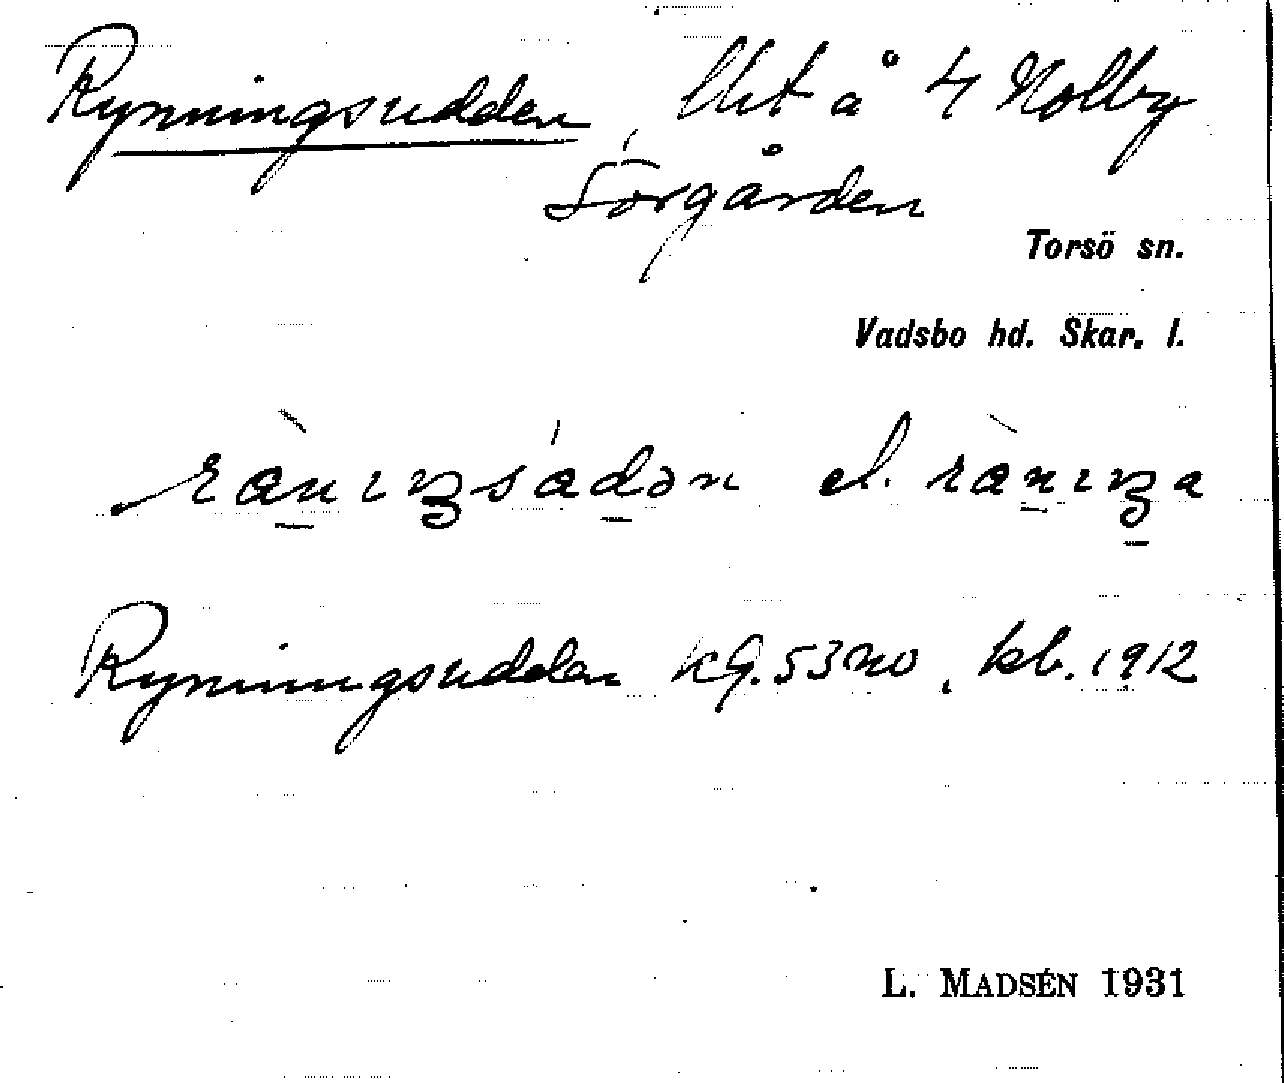 Rynningsudden, lht å 4 Nolby
Sörgården
Torsö sn.
Vadsbo hd. Skar. l.
el.
Rynningsudden kG. 53 NO, kb. 1912
L. MADSÉN 1931